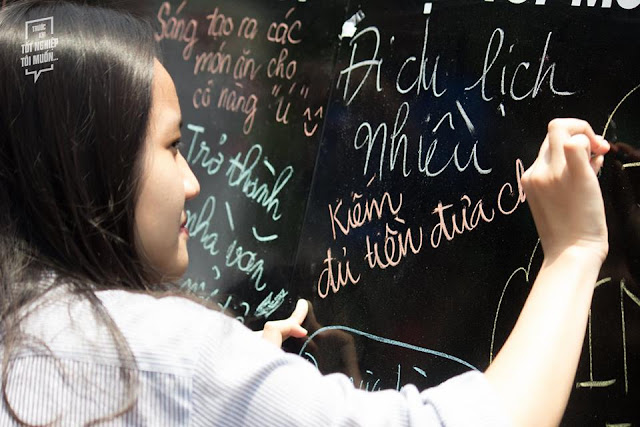 TRƯỚC
KHI
TỐT NGHIỆP
TÔI MUỐN...
Sáng tạo ra các
món ăn cho
cô nàng "Ú"
Trở thành
nhà văn
Đi du lịch
nhiều
Kiếm
đủ tiền đưa